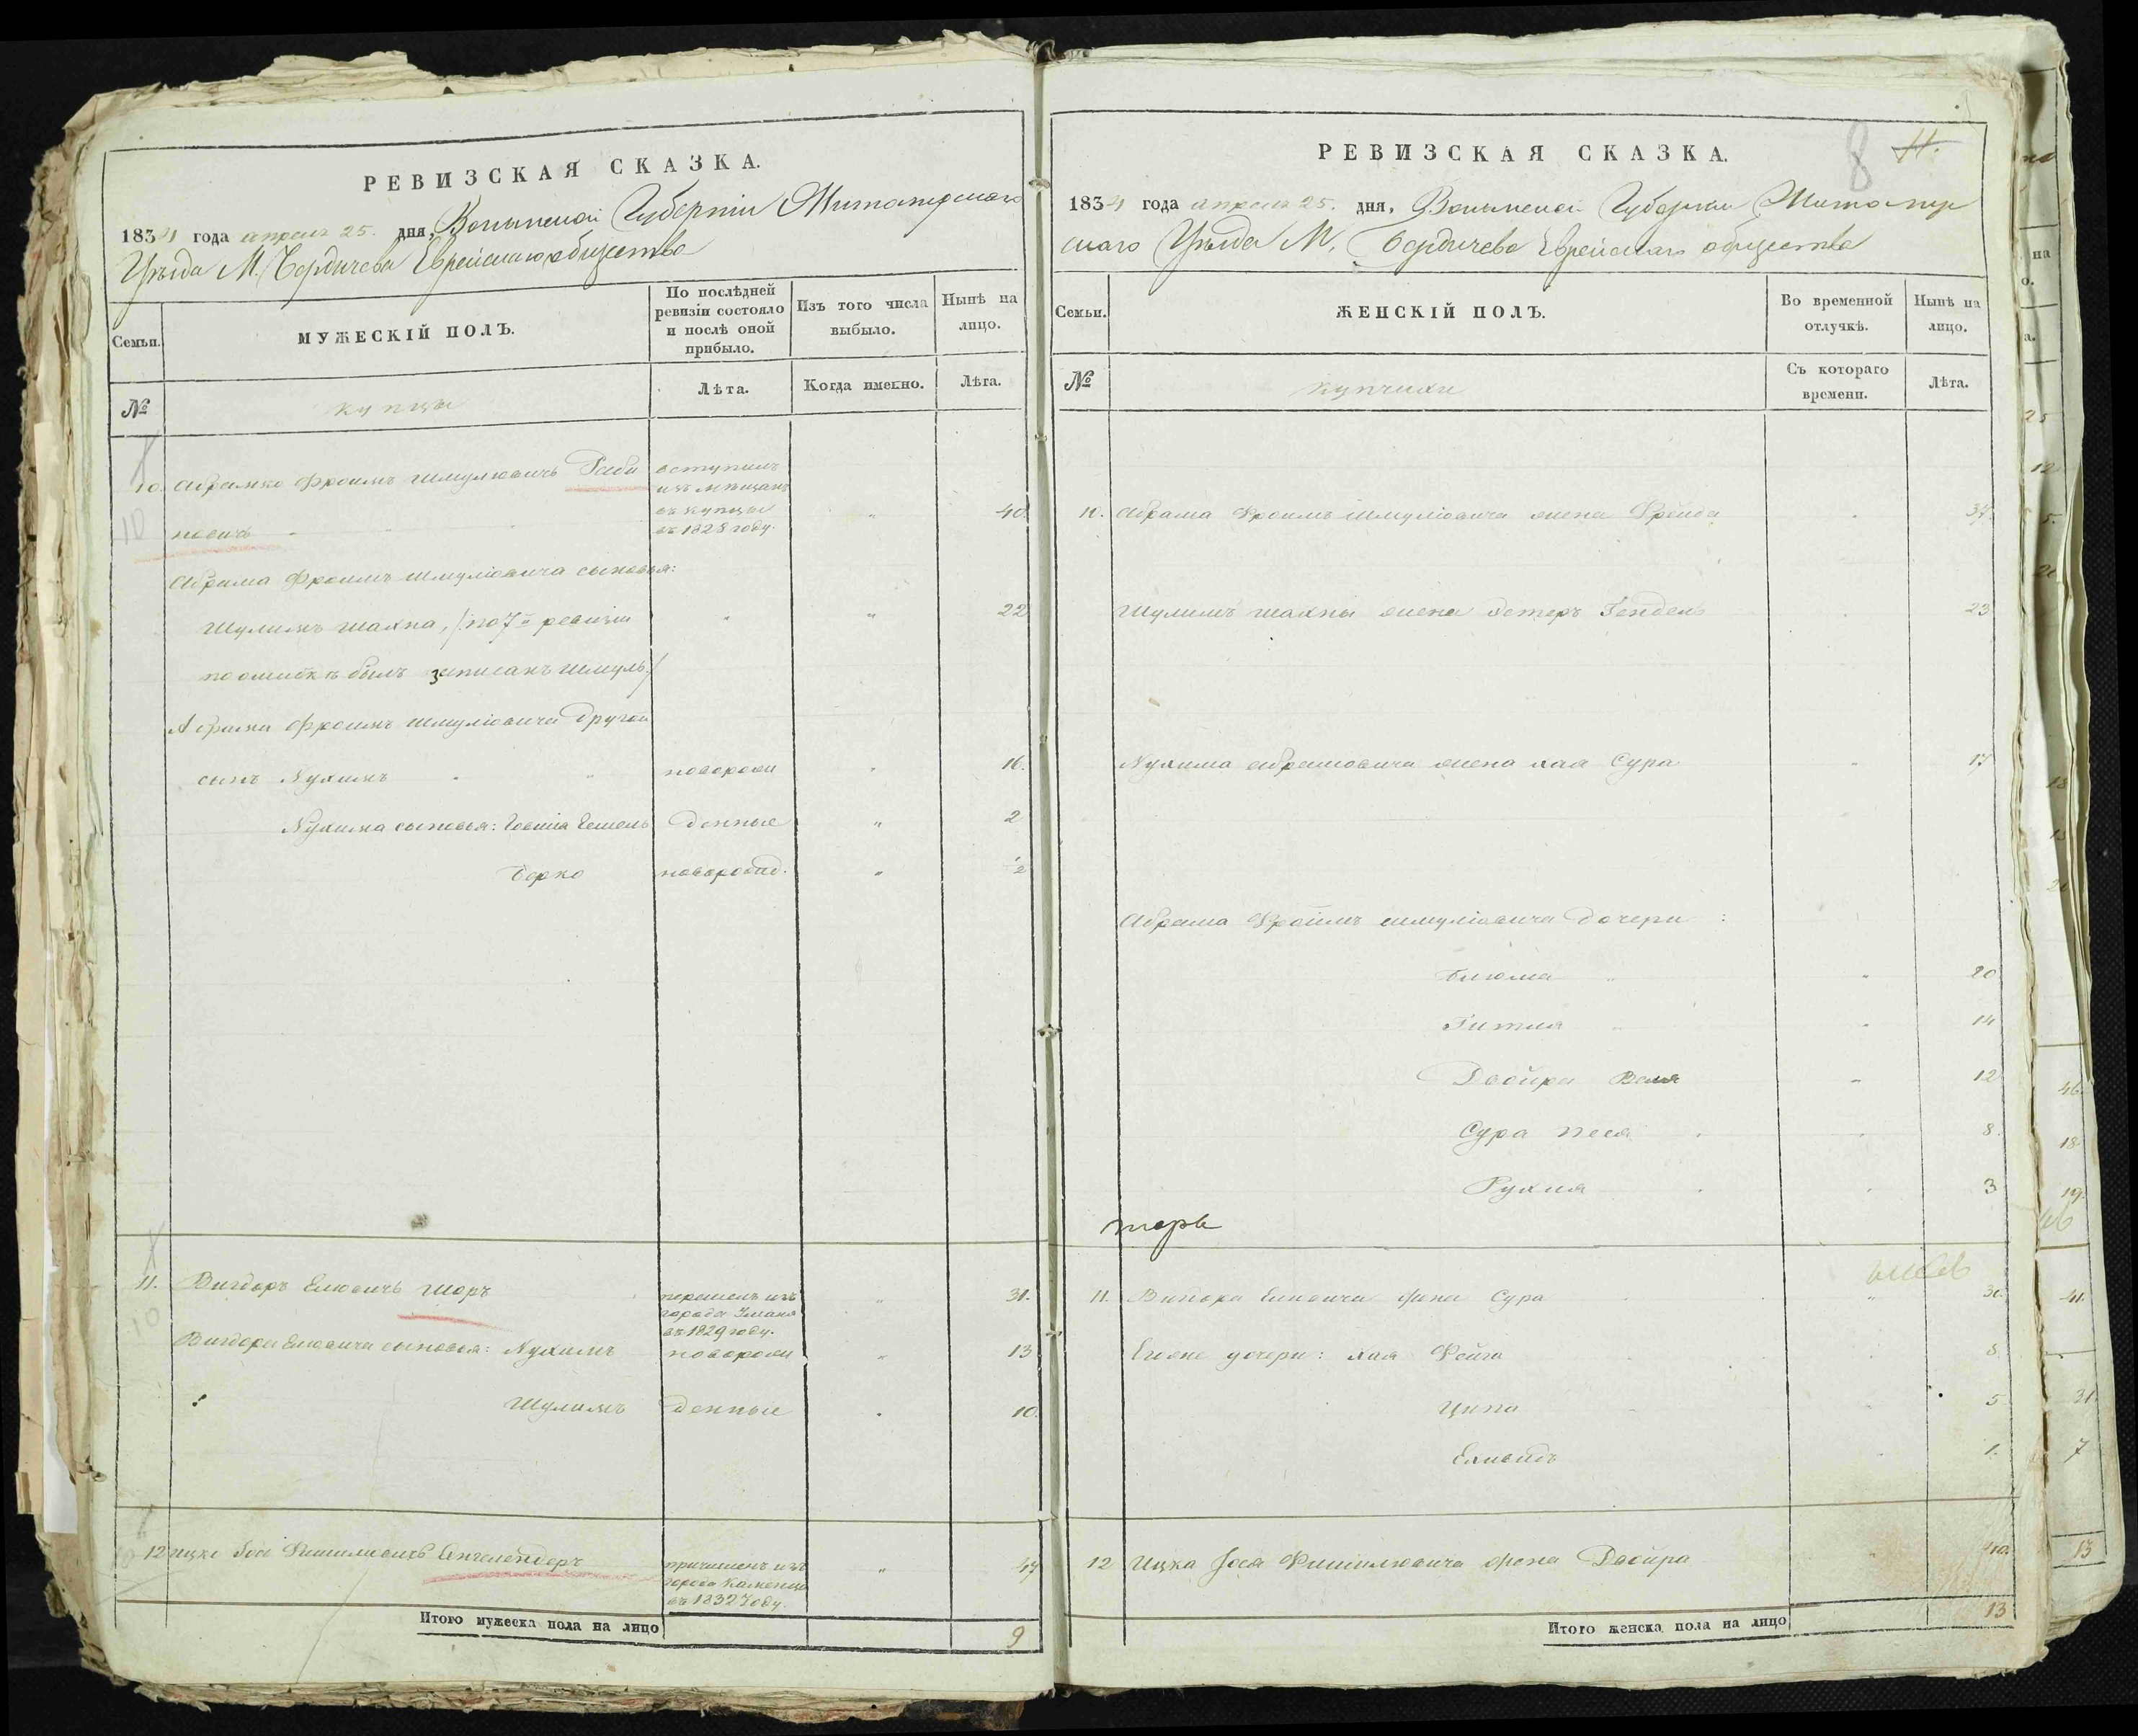 РЕВИЗСКАЯ СКАЗКА.
1834 года апреля 25. дня, Волынской Губернии Житомирскаго
Уезда М. Бердичева Еврейскаго общества
Семьи.
МУЖЕСКІЙ ПОЛЪ.
По послѣдней ревизіи состояло и послѣ оной прибыло.
Изъ того числа выбыло.
Нынѣ на лицо.
№
купцы
Лѣта.
Когда именно.
Лѣта.
10. Абрамко Фроимъ Шмулювичъ Раби
новичъ
вступилъ
изъ мѣщанъ
въ купцы
въ 1828 году.
40.
10
Абрама Фроимъ Шмуліовича сыновья:
Шулимъ Шахна, /: по 7й ревизіи 22
по ошибкѣ былъ записанъ Шмуль :/
Абрама Фроимъ Шмуліовича другой
сынъ Нухимъ новорож 16.
Нухима сыновья: Іовшіа Гешель денные 2
Берко новорожд. ½
11. Вигдоръ Елювичъ Шоръ
перешелъ изъ
города Уманя
въ 1829 году.
31.
10
Вигдора Елювича сыновья: Нухимъ новорож 13
Шулимъ денные 10.
12 Ицко Іосъ Фишилювичъ Ангелендеръ
причисленъ изъ
города Каменца
въ 1832 году.
47
Итого мужеска пола на лицо 9
8 11.
РЕВИЗСКАЯ СКАЗКА.
1834 года апреля 25. дня, Волынской Губерніи Житомир
скаго Уезда М. Бердичева Еврейскаго общества
Семьи.
ЖЕНСКІЙ ПОЛЪ.
Во временной отлучкѣ.
Нынѣ на лицо.
№
купчихи
Съ котораго времени.
Лѣта.
10. Абрама Фроимъ Шмуліовича жена Фрейда 37.
Шулимъ Шахны жена Эстеръ Гендель 23
Нухима Абрамовича жена Хая Сура 17
Абрама Фроимъ Шмуліовича дочери:
Блюма 20.
Гитля 14
Двойра Веля 12
Сура Песя 8.
Рухля 3
11. Вигдора Елювича жена Сура 30.
Его же дочери: Хая Фейга 8.
Ципа 5
1.
12 Ицка Іося Фишилювича жена Двойра 40.
Итого женска пола на лицо 13